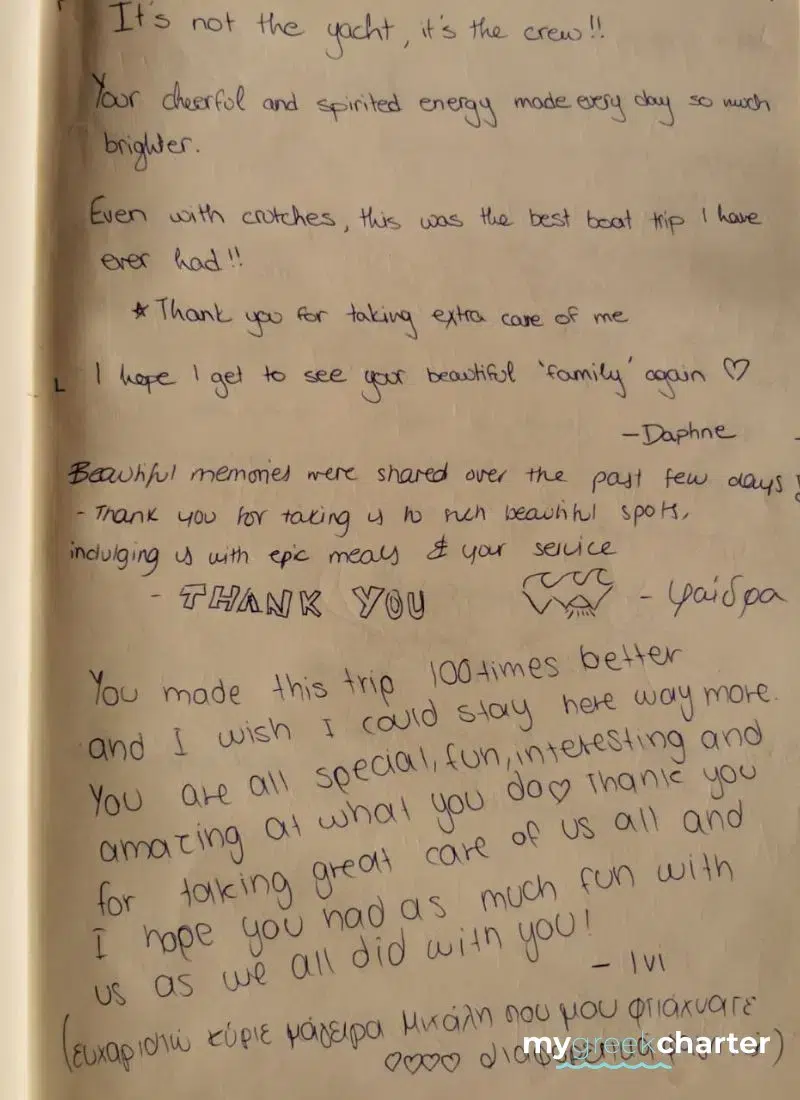 It's not the yacht, it's the crew!!
Your cheerful and spirited energy made every day so much
brighter.
Even with crutches, this was the best boat trip I have
ever had!!
* Thank you for taking extra care of me
I hope I get to see your beautiful 'family' again ♡
- Daphne
Beautiful memories were shared over the past few days!
- Thank you for taking us to such beautiful spots,
indulging us with epic meals & your service
- THANK YOU - Φαίδρα
You made this trip 100 times better
and I wish I could stay here way more.
You are all special, fun, interesting and
amazing at what you do ♡ Thank you
for taking great care of us all and
I hope you had as much fun with
us as we all did with you!
- Ivi
(ευχαριστώ κύριε μάγειρα Μιχάλη που μου φτιάχνατε
♡♡♡♡ διαφορετικά )
mygreekcharter